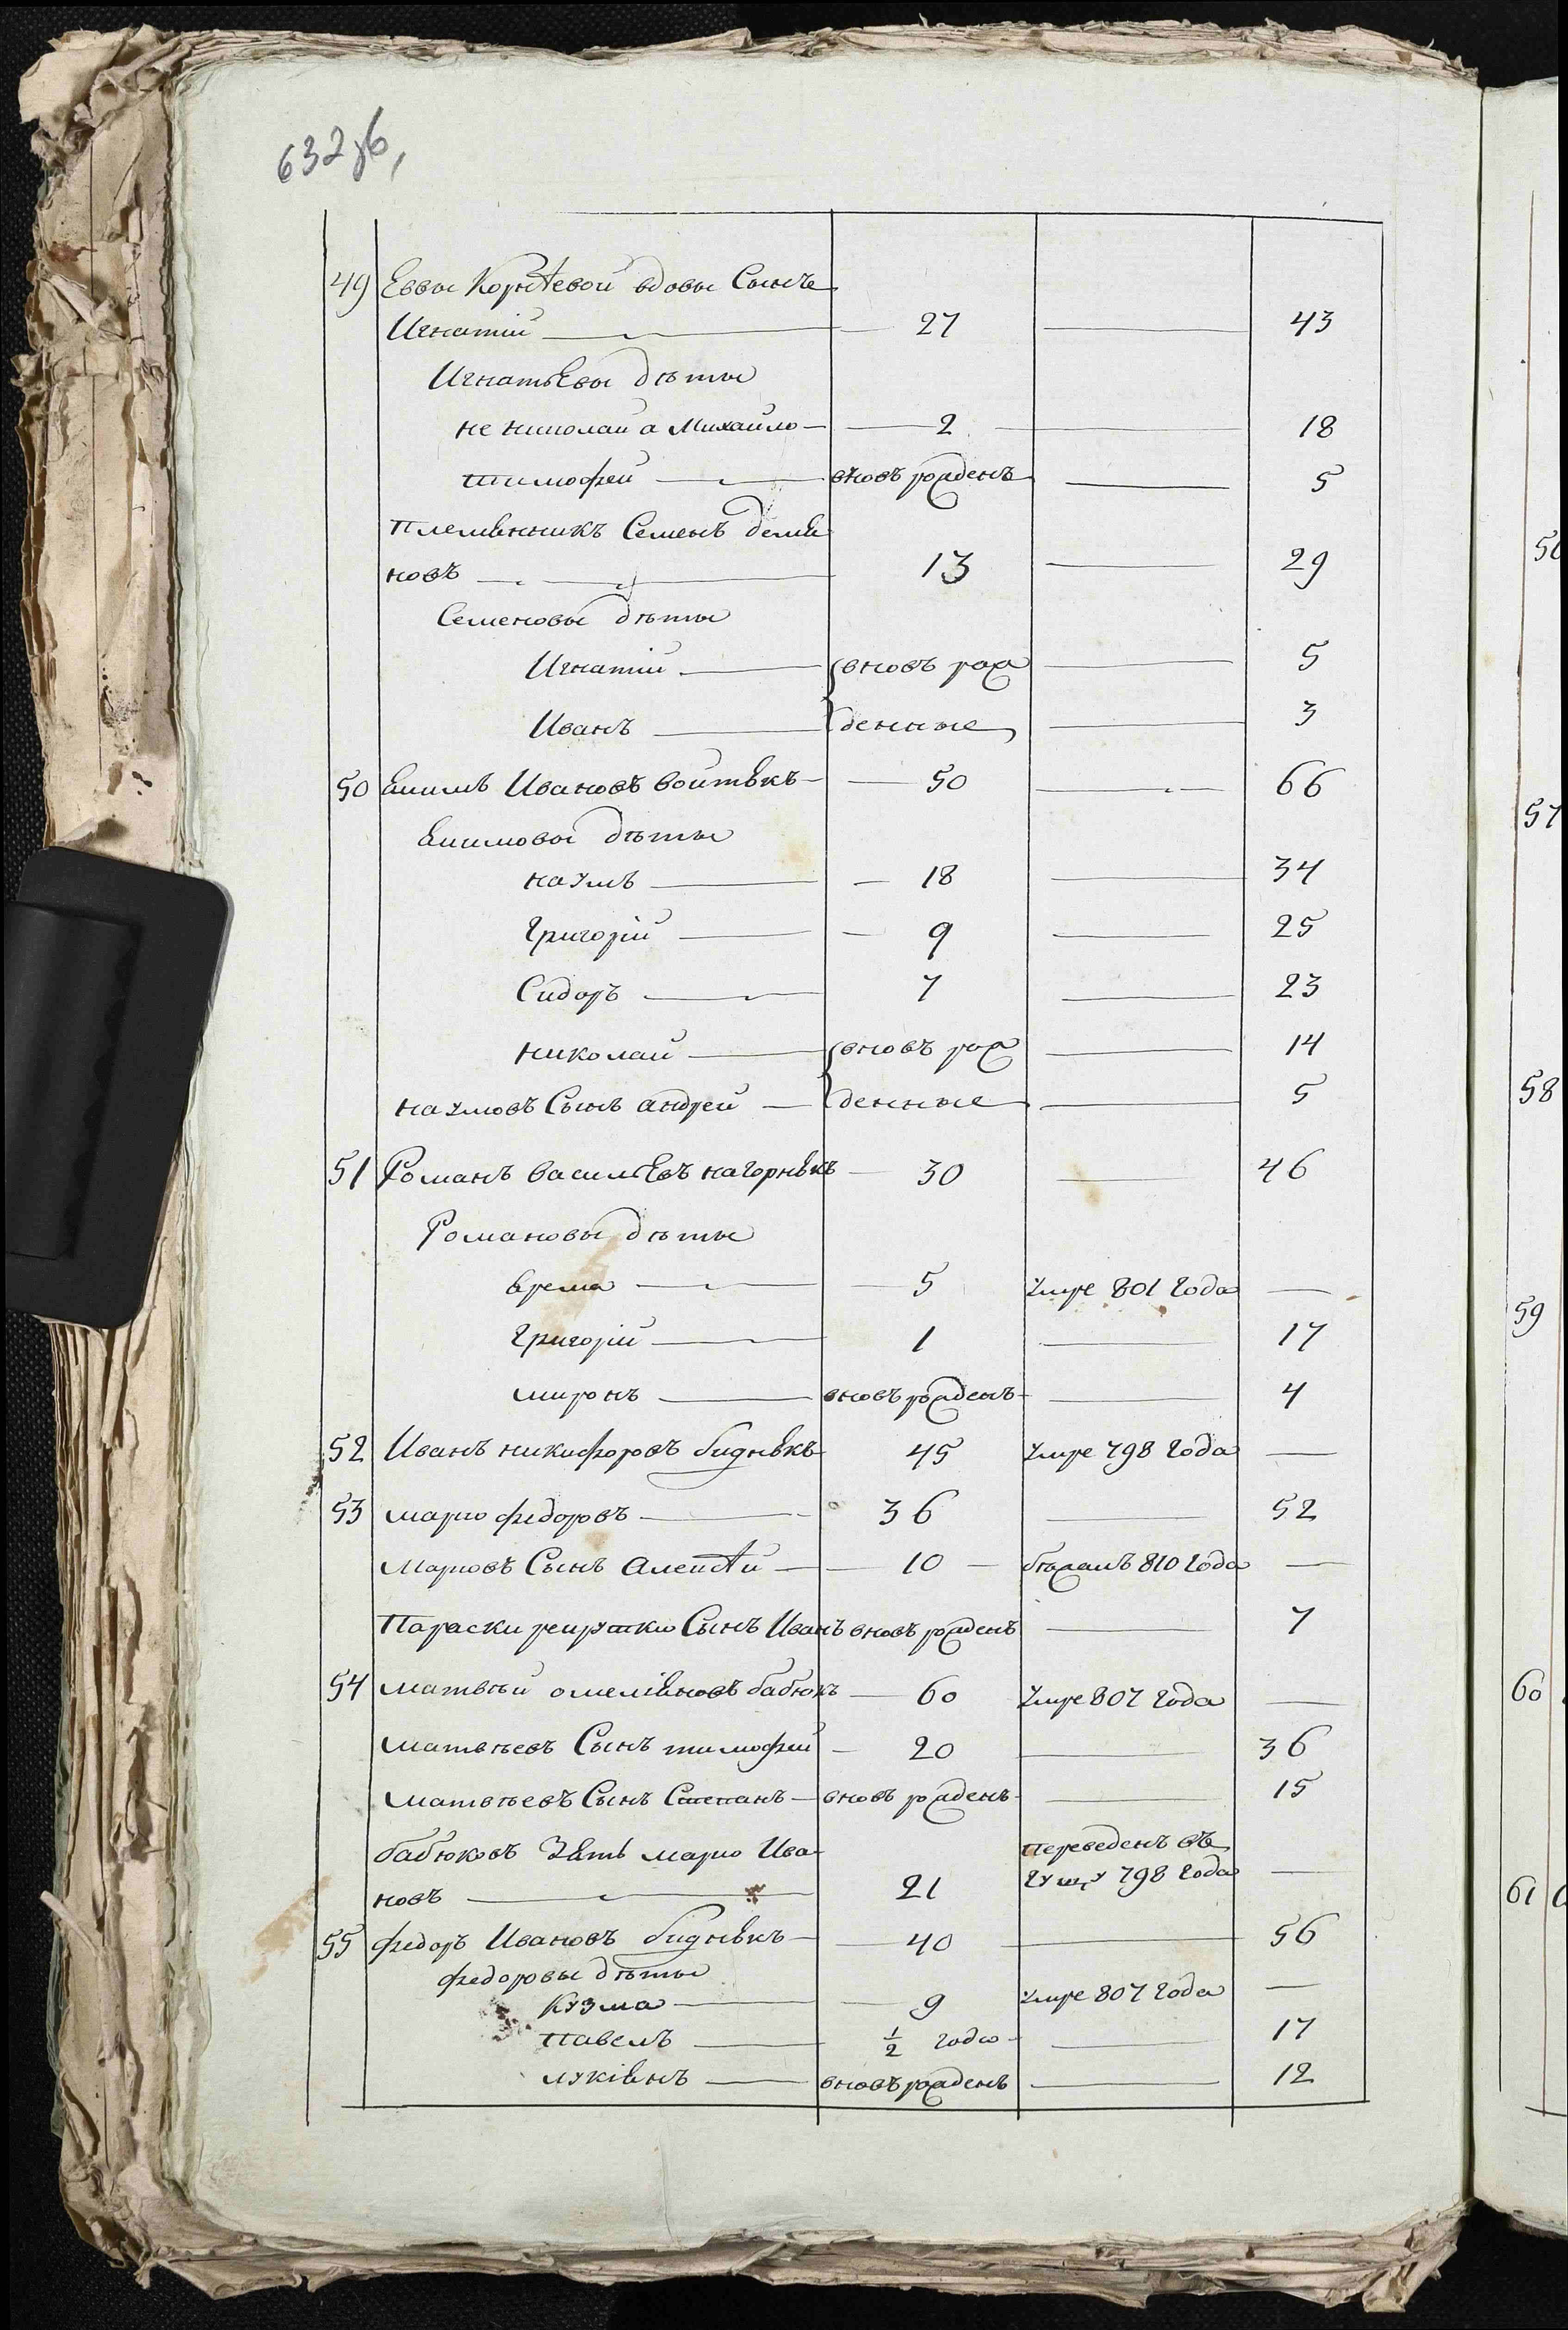 632 об,
49 Еввы Корнѣевой вдовы Сынъ
Игнатій 27 43
Игнатьевы дѣти
не николай а Михайло 2 18
тимофей вновь рожденъ 5
Племянникъ Семенъ демя
новъ 13 29
Семеновы дѣти
Игнатій вновь рож 5
Иванъ денные 3
50 Якимъ Ивановъ войтякъ 50 66
Якимовы дѣти
наумъ 18 34
Григорій 9 25
Сидоръ 7 23
николай вновь рож 14
наумовъ Сынъ андрей денные 5
51 Романъ васильевъ нагорнякъ 30 46
Романовы дѣти
ярема 5 умре 801 года
Григорій 1 17
миронъ вновь рожденъ 4
52 Иванъ никифоровъ биднякъ 45 умре 798 года
53 марко федоровъ 36 52
Марковъ Сынъ Алексѣй 10 бѣжалъ 810 года
Параски Сынъ Иванъ вновь рожденъ 7
54 матвѣй омеляновъ бабюкъ 60 умре 807 года
матвѣевъ Сынъ тимофей 20 36
матвѣевъ Сынъ Степанъ вновь рожденъ 15
бабюковъ Зять марко Ива
новъ 21
переведенъ въ
гущу 798 года
55 федоръ Ивановъ биднякъ 40 56
федоровы дѣти
кузма 9 умре 807 года
павелъ 1/2 года 17
лукіянъ вновь рожденъ 12
57
58
59
60
61